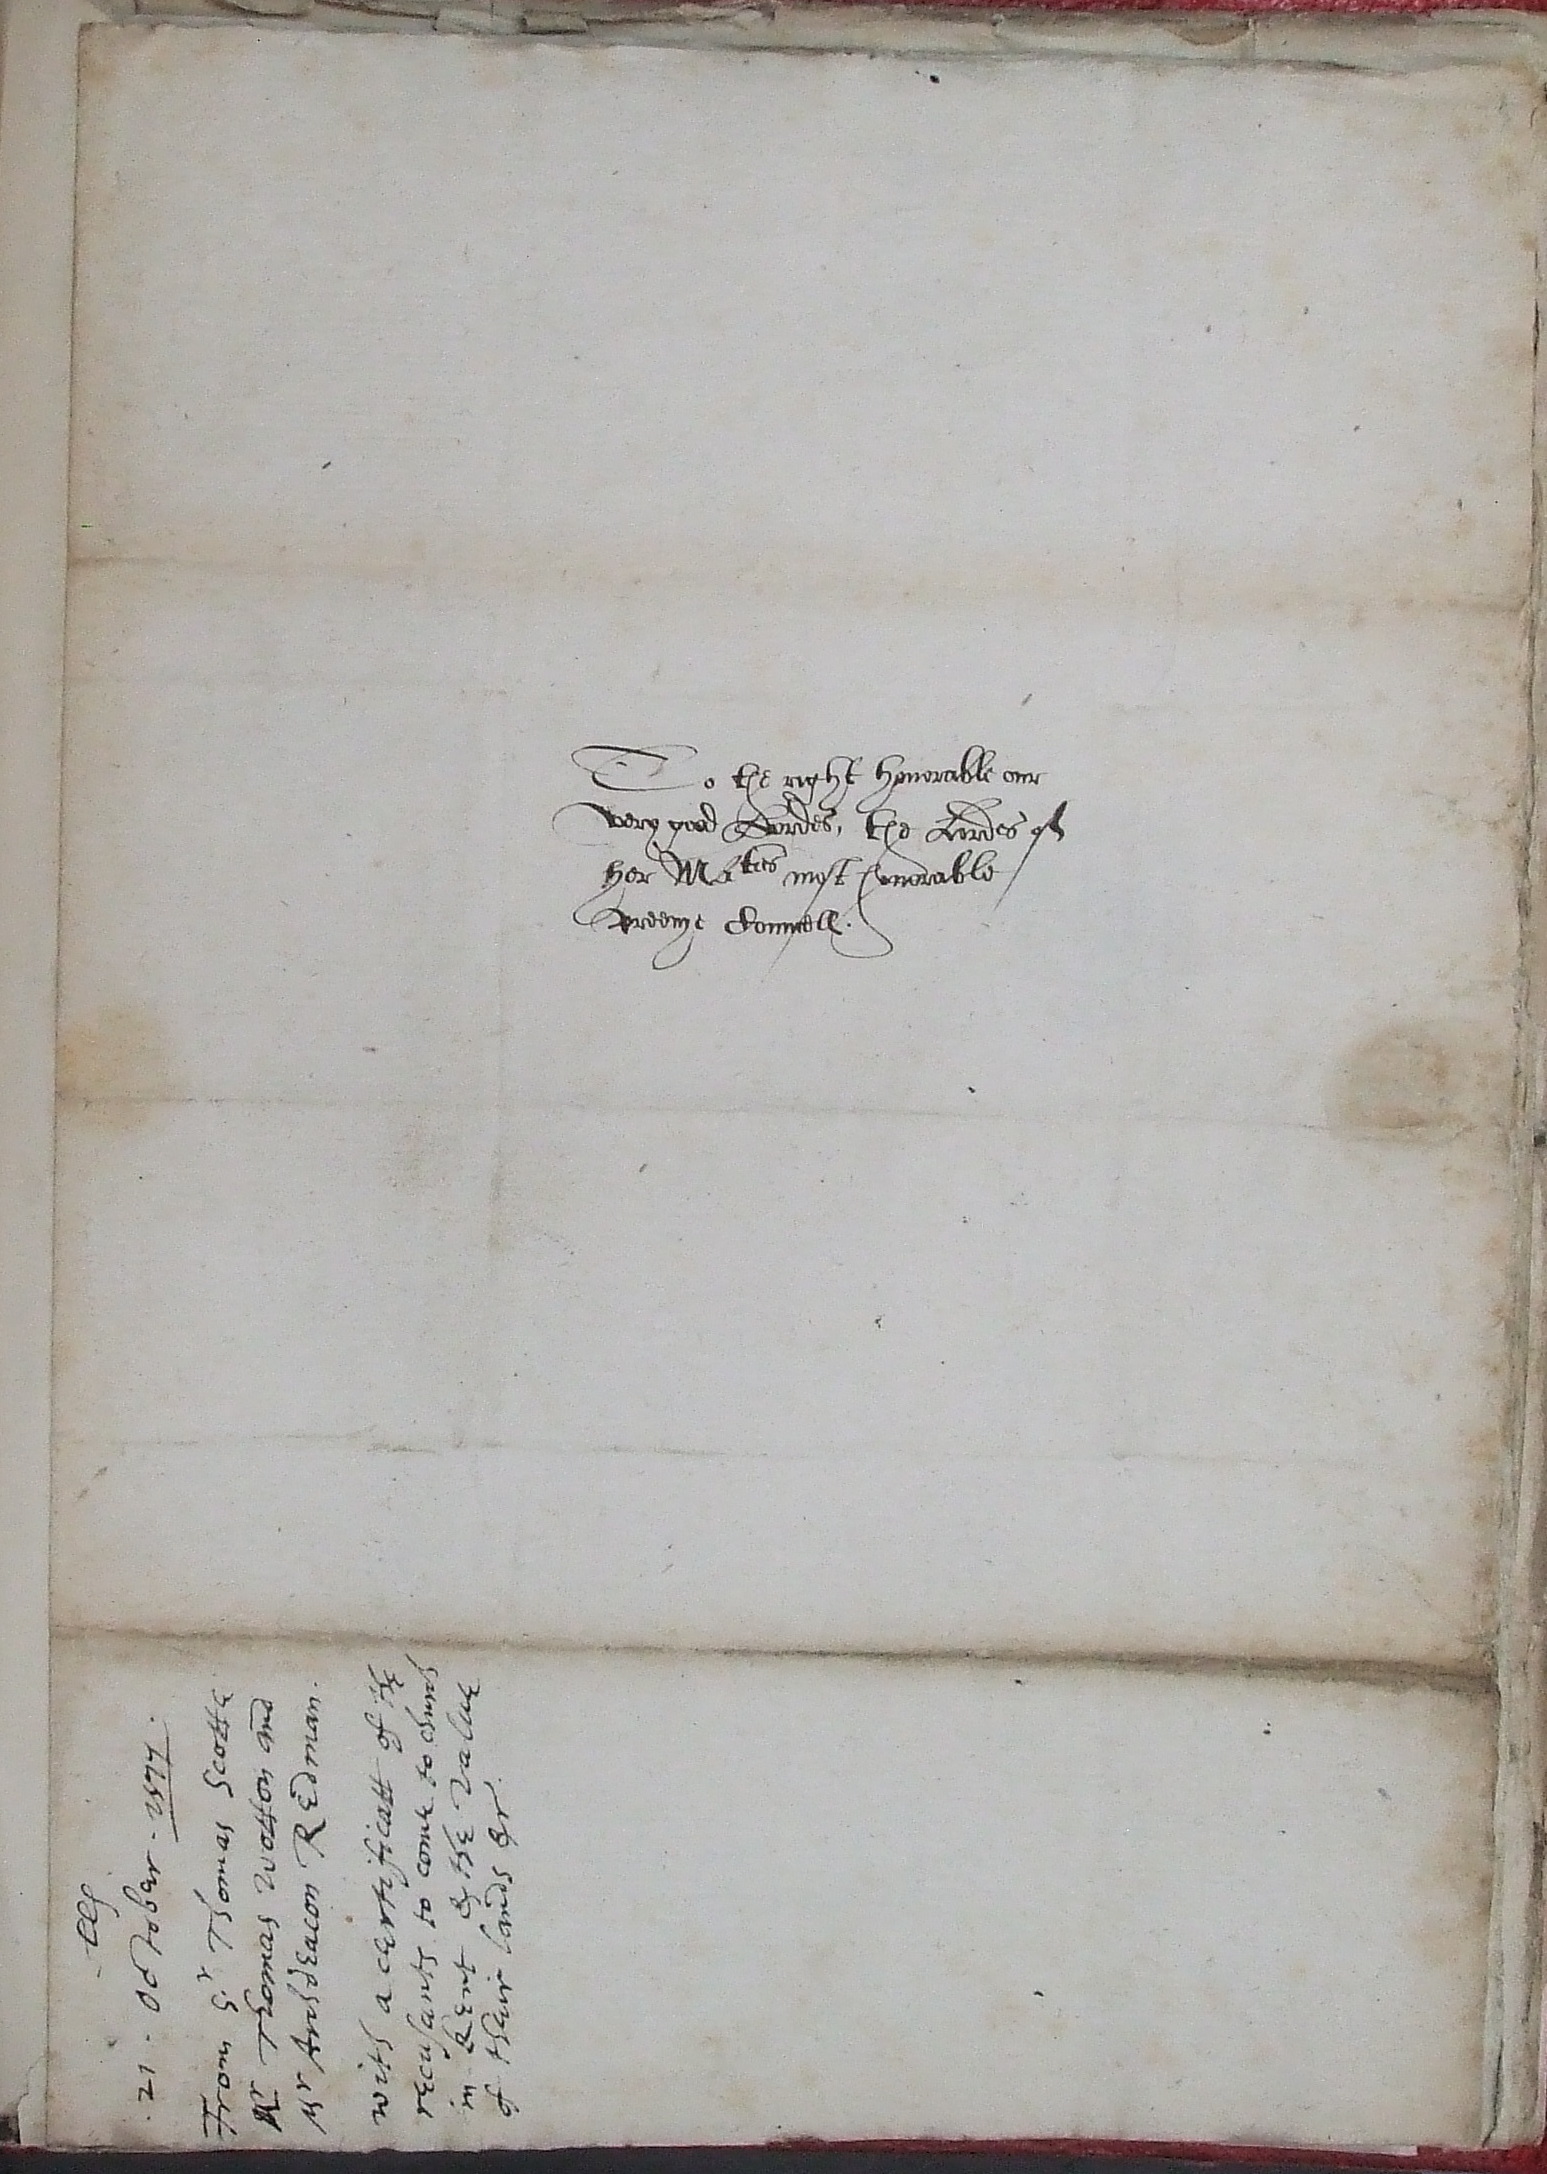 To the right honorable our
very good Lordes, the Lordes of
her Ma^ties most honorable
Preevye Counsell.
21 . October . 1577 .
From S^r Thomas Scotte
Mr Thomas Wotton and
Mr Archdeacon Redman.
with a certificatt of the
recusants to come to church
in Kent & the value
of their lands &c.